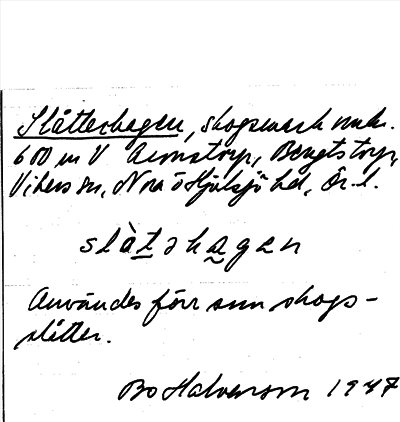 Slåtterhagen, skogsmark mk.
600 m V Aronstorp, Bengtstorp,
Vikers sn, Nora o Hjulsjö hd, Ör. l.
slàt̲ə ha̰gən
Användes förr som skogs-
slåtter.
Bo Halvarson 1947